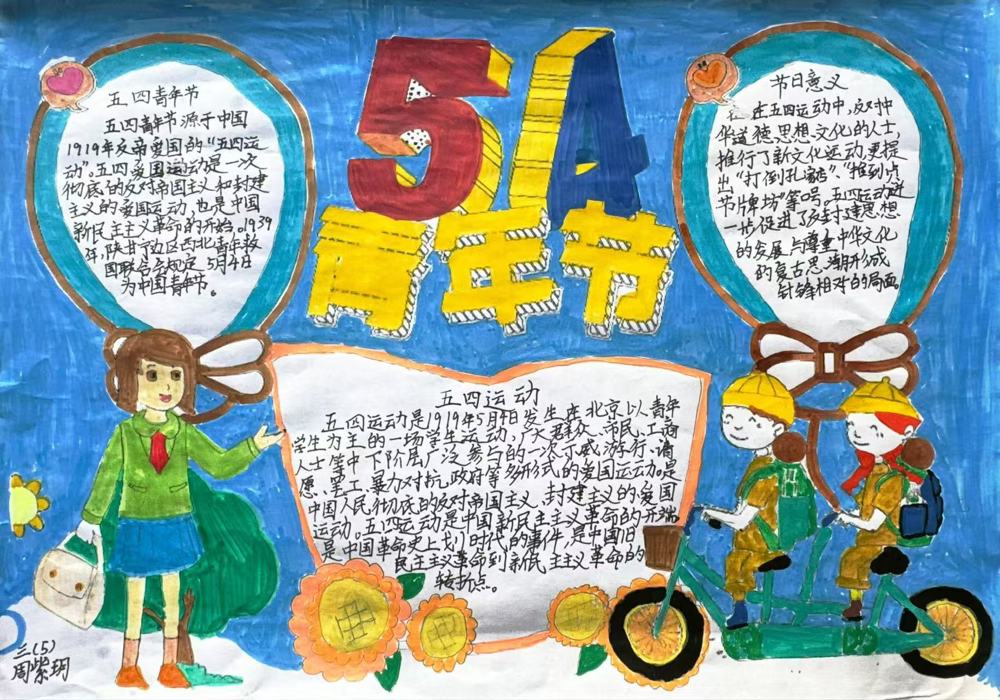 54
青年节
五四青年节
五四青年节源于中国
1919年反帝爱国的"五四运
动"。五四爱国运动是一次
彻底的反对帝国主义和封建
主义的爱国运动,也是中国
新民主主义革命的开始。1939
年,陕甘宁边区西北青年救
国联合会规定5月4日
为中国青年节。
节日意义
在五四运动中,反对中
华道德思想文化的人士,
推行了新文化运动,更提
出"打倒孔家店""推到贞
节牌坊"等号。五四运动进
一步促进了反封建思想
的发展与尊重中华文化
的复古思潮形成
针锋相对的局面。
五四运动
五四运动是1919年5月4日发生在北京以青年
学生为主的一场学生运动,广大群众、市民、工商
人士等中下阶层广泛参与的一次示威游行、请
愿、罢工、暴力对抗政府等多种形式的爱国运动。是
中国人民彻底的反对帝国主义、封建主义的爱国
运动。五四运动是中国新民主主义革命的开端
是中国革命史上划时代的事件,是中国旧
民主主义革命到新民主主义革命的
转折点。
三(5)
周紫玥